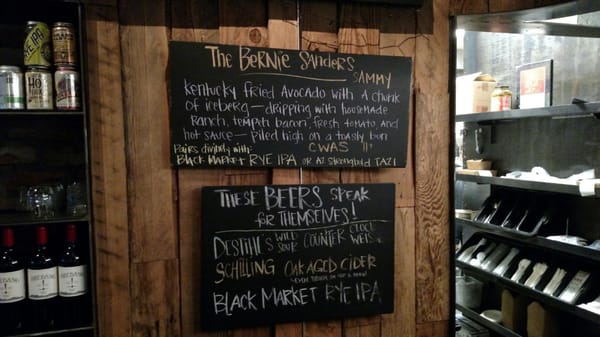 The Bernie Sanders
SAMMY
Kentucky Fried Avocado with A chunk
of iceberg — dripping with housemade
Ranch, tempeh bacon, fresh tomato, and
hot sauce — Piled high on a toasty bun
Pairs divinely with:
BLACK MARKET RYE IPA or
THESE BEERS SPEAK
for THEMSELVES!
COUNTER CLOCK
WEISSE
SCHILLING OAK AGED CIDER
BLACK MARKET RYE IPA